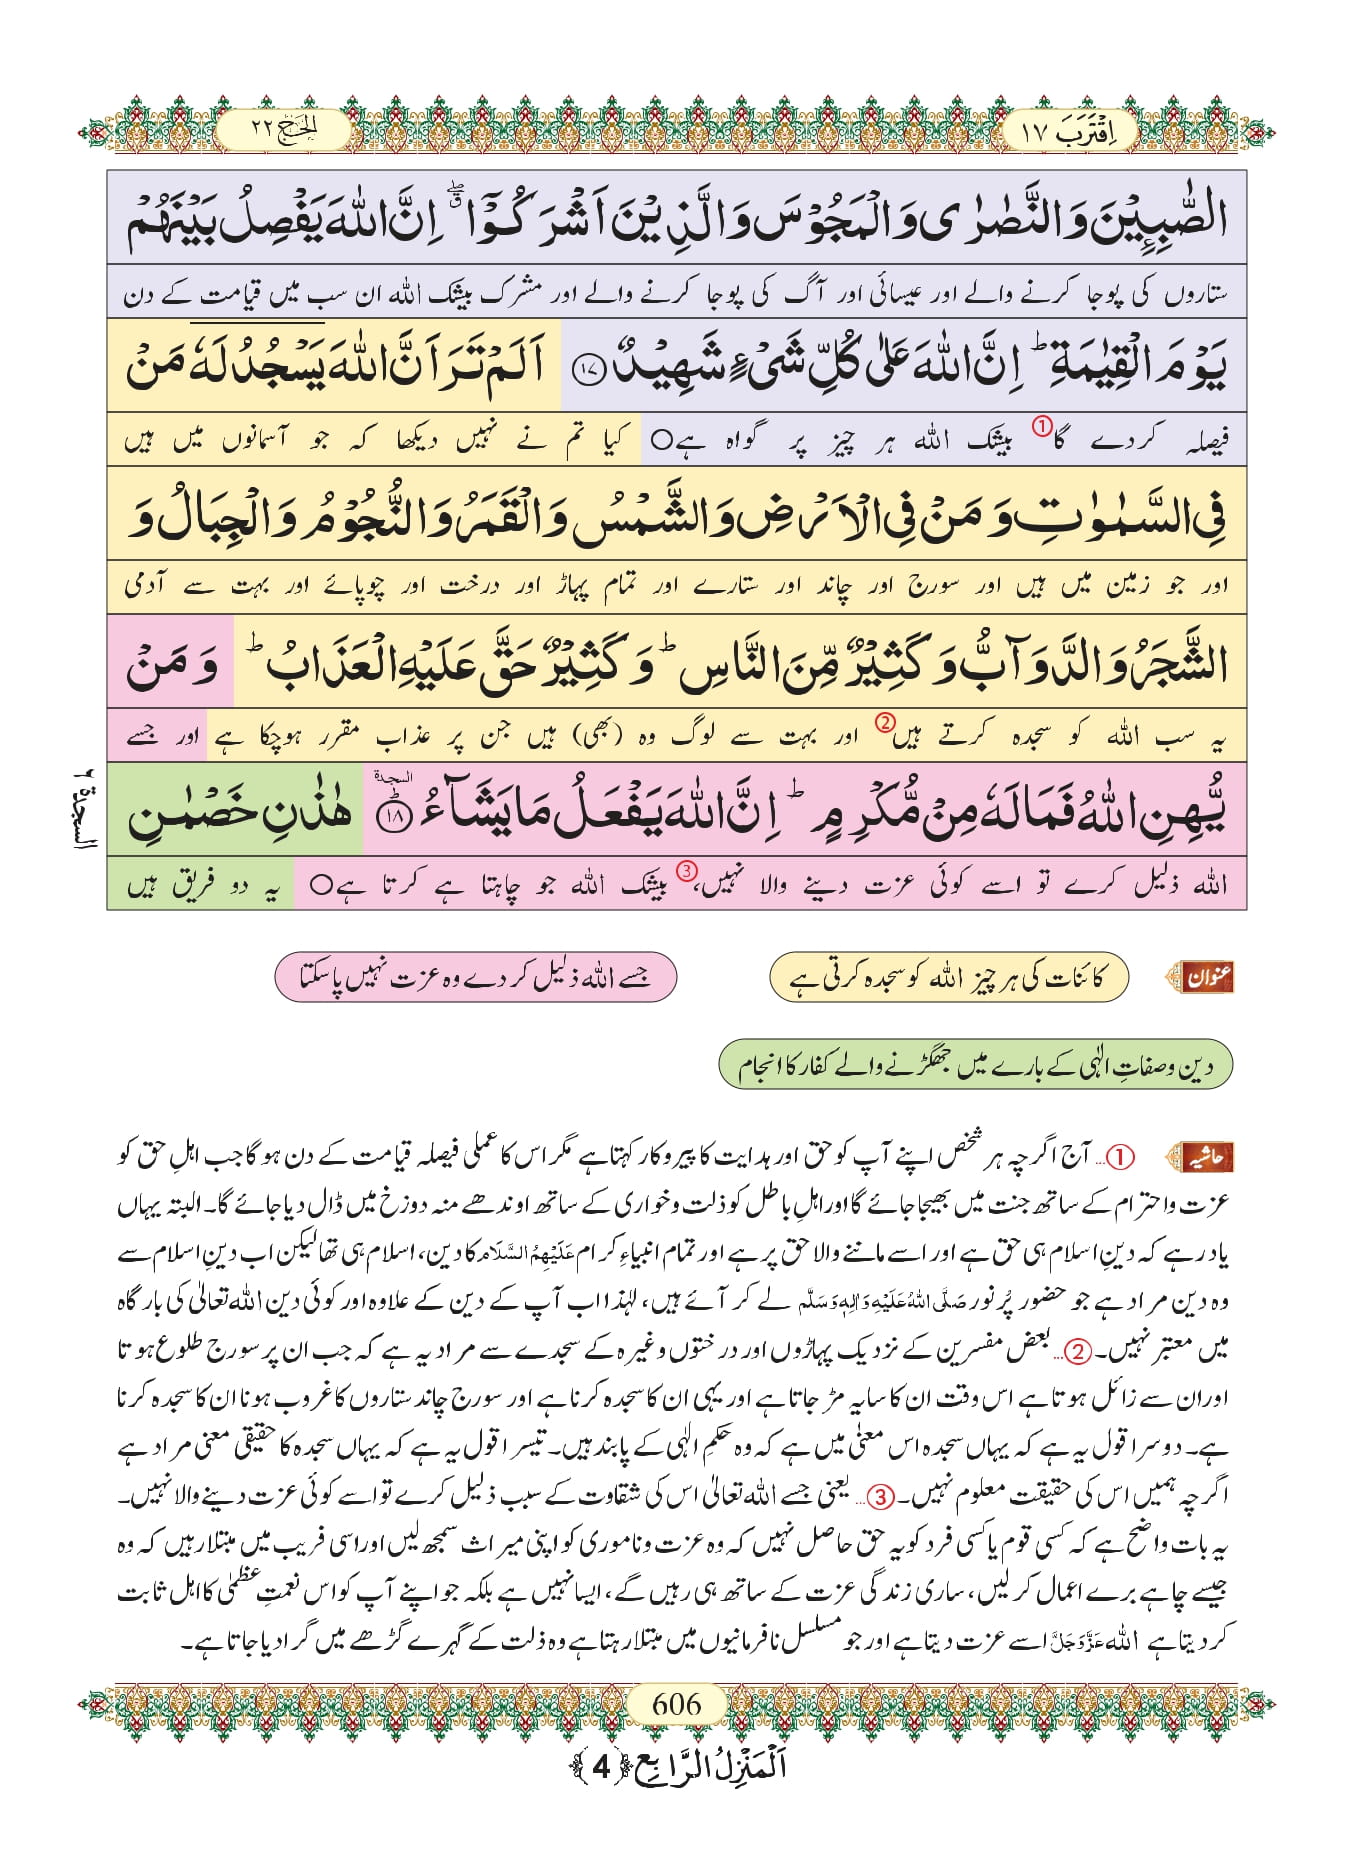 اِقْتَرَبَ ١٧
الحج ٢٢
الصّٰبِـِٕیْنَ وَ النَّصٰرٰى وَ الْمَجُوْسَ وَ الَّذِیْنَ اَشْرَكُوْۤا ۖۗ اِنَّ اللّٰهَ یَفْصِلُ بَیْنَهُمْ
ستاروں کی پوجا کرنے والے اور عیسائی اور آگ کی پوجا کرنے والے اور مشرک بیشک اللہ ان سب میں قیامت کے دن
یَوْمَ الْقِیٰمَةِ ؕ اِنَّ اللّٰهَ عَلٰى كُلِّ شَیْءٍ شَهِیْدٌ ﴿۱۷﴾ اَلَمْ تَرَ اَنَّ اللّٰهَ یَسْجُدُ لَهٗ مَنْ
فیصلہ کردے گا① بیشک اللہ ہر چیز پر گواہ ہے○ کیا تم نے نہیں دیکھا کہ جو آسمانوں میں ہیں
فِی السَّمٰوٰتِ وَ مَنْ فِی الْاَرْضِ وَ الشَّمْسُ وَ الْقَمَرُ وَ النُّجُوْمُ وَ الْجِبَالُ وَ
اور جو زمین میں ہیں اور سورج اور چاند اور ستارے اور تمام پہاڑ اور درخت اور چوپائے اور بہت سے آدمی
الشَّجَرُ وَ الدَّوَآبُّ وَ كَثِیْرٌ مِّنَ النَّاسِ ؕ وَ كَثِیْرٌ حَقَّ عَلَیْهِ الْعَذَابُ ؕ وَ مَنْ
یہ سب اللہ کو سجدہ کرتے ہیں② اور بہت سے لوگ وہ (بھی) ہیں جن پر عذاب مقرر ہوچکا ہے اور جسے
یُّهِنِ اللّٰهُ فَمَا لَهٗ مِنْ مُّكْرِمٍ ؕ اِنَّ اللّٰهَ یَفْعَلُ مَا یَشَآءُ ﴿۱۸﴾ السجدة هٰذٰنِ خَصْمٰنِ
السجدة ٦
اللہ ذلیل کرے تو اسے کوئی عزت دینے والا نہیں،③ بیشک اللہ جو چاہتا ہے کرتا ہے○ یہ دو فریق ہیں
عنوان کائنات کی ہر چیز اللہ کو سجدہ کرتی ہے جسے اللہ ذلیل کر دے وہ عزت نہیں پاسکتا
دین وصفاتِ الٰہی کے بارے میں جھگڑنے والے کفار کا انجام
حاشیہ ①... آج اگرچہ ہر شخص اپنے آپ کو حق اور ہدایت کا پیروکار کہتا ہے مگر اس کا عملی فیصلہ قیامت کے دن ہو گا جب اہلِ حق کو
عزت واحترام کے ساتھ جنت میں بھیجا جائے گا اور اہلِ باطل کو ذلت وخواری کے ساتھ اوندھے منہ دوزخ میں ڈال دیا جائے گا۔ البتہ یہاں
یاد رہے کہ دینِ اسلام ہی حق ہے اور اسے ماننے والا حق پر ہے اور تمام انبیاءِ کرام عَلَیْهِمُ السَّلَام کا دین، اسلام ہی تھا لیکن اب دینِ اسلام سے
وہ دین مراد ہے جو حضور پُرنور صَلَّى اللهُ عَلَیْهِ وَاٰلِهٖ وَسَلَّم لے کر آئے ہیں، لہٰذا اب آپ کے دین کے علاوہ اور کوئی دین اللہ تعالٰی کی بارگاہ
میں معتبر نہیں۔ ②... بعض مفسرین کے نزدیک پہاڑوں اور درختوں وغیرہ کے سجدے سے مراد یہ ہے کہ جب ان پر سورج طلوع ہوتا
اور ان سے زائل ہوتا ہے اس وقت ان کا سایہ مڑ جاتا ہے اور یہی ان کا سجدہ کرنا ہے اور سورج چاند ستاروں کا غروب ہونا ان کا سجدہ کرنا
ہے۔ دوسرا قول یہ ہے کہ یہاں سجدہ اس معنیٰ میں ہے کہ وہ حکمِ الٰہی کے پابند ہیں۔ تیسرا قول یہ ہے کہ یہاں سجدہ کا حقیقی معنی مراد ہے
اگرچہ ہمیں اس کی حقیقت معلوم نہیں۔ ③... یعنی جسے اللہ تعالٰی اس کی شقاوت کے سبب ذلیل کرے تو اسے کوئی عزت دینے والا نہیں۔
یہ بات واضح ہے کہ کسی قوم یا کسی فرد کو یہ حق حاصل نہیں کہ وہ عزت وناموری کو اپنی میراث سمجھ لیں اور اسی فریب میں مبتلا رہیں کہ وہ
جیسے چاہے برے اعمال کر لیں، ساری زندگی عزت کے ساتھ ہی رہیں گے، ایسا نہیں ہے بلکہ جو اپنے آپ کو اس نعمتِ عظمیٰ کا اہل ثابت
کر دیتا ہے اللہ عَزَّوَجَلَّ اسے عزت دیتا ہے اور جو مسلسل نافرمانیوں میں مبتلا رہتا ہے وہ ذلت کے گہرے گڑھے میں گرا دیا جاتا ہے۔
606
اَلْمَنْزِلُ الرَّابِعُ ﴿4﴾